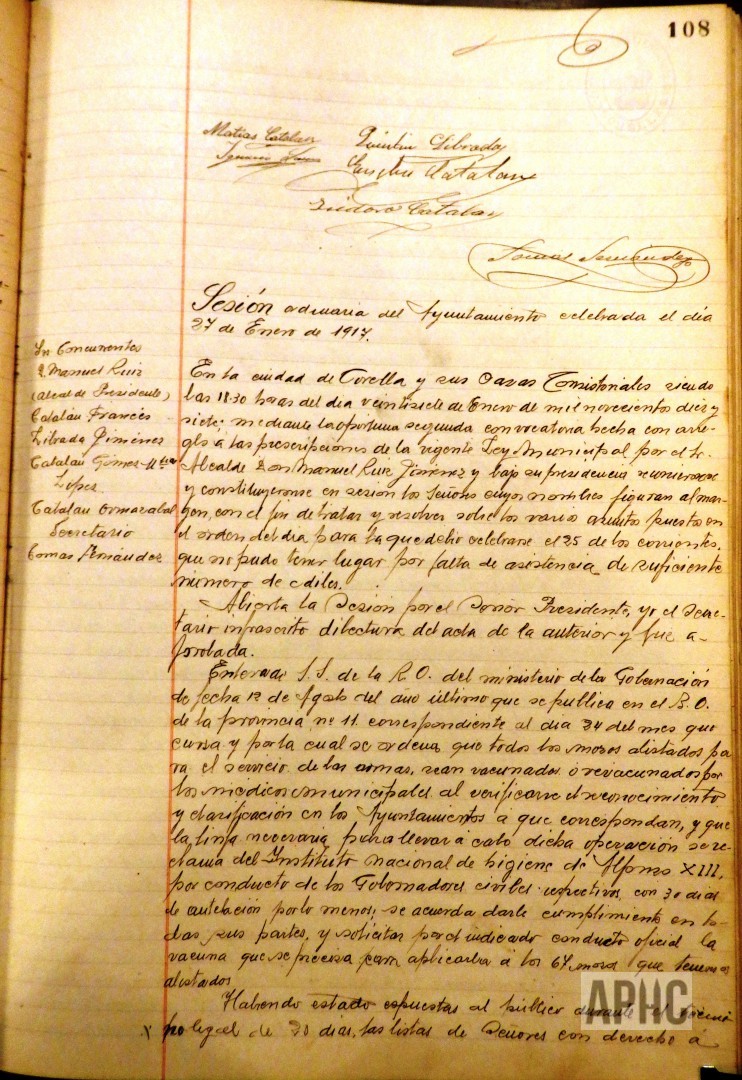 108
Matías Catalan
Quintin Librada
Catalan
Isidoro Catalan
Tomas Fernández
Sesión ordinaria del Ayuntamiento celebrada el día
27 de Enero de 1917.
Sres Concurrentes
D. Manuel Ruiz
(Alcalde Presidente)
Catalán Francés
Librada Jiménez
Catalán Gómez
Lopez
Catalán Ormazabal
Secretario
Tomas Fernández
En la ciudad de Corella y sus Casas Consistoriales siendo
las 18.30 horas del día veintisiete de Enero de mil novecientos diez y
siete; mediante la oportuna segunda convocatoria hecha con arre-
glo a las prescripciones de la vigente Ley Municipal por el Sr
Alcalde Don Manuel Ruiz Jiménez y bajo su presidencia reunieronse
y constituyeronse en sesión los Señores cuyos nombres figuran al mar-
gen, con el fin de tratar y resolver sobre los varios asuntos puestos en
el orden del día para la que debio celebrarse el 25 de los corrientes,
que no pudo tener lugar por falta de asistencia de suficiente
número de ediles.
Abierta la Sesión por el Señor Presidente, yo el Secre-
tario infrascrito di lectura del acta de la anterior y fue a-
probada.
Enterada S.S. de la R.O. del ministerio de la Gobernación
de fecha 12 de Agosto del año último que se publica en el B.O.
de la provincia nº 11 correspondiente al día 24 del mes que
cursa y por la cual se ordena que todos los mozos alistados pa
ra el servicio de las armas, sean vacunados ó revacunados por
los medicos municipales al verificarse el reconocimiento
y clasificación en los Ayuntamientos a que correspondan, y que
la linfa necesaria para llevar a cabo dicha operación se re-
clama del Instituto Nacional de higiene de Alfonso XIII,
por conducto de los Gobernadores civiles respectivos, con 30 dias
de antelación por lo menos; se acuerda darle cumplimiento en to-
das sus partes, y solicitar por el indicado conducto oficial la
vacuna que se precisa para aplicarla á los 64 mozos que tenemos
alistados.
Habiendo estado espuestas al público durante el tiem
po legal de 20 dias, las listas de Señores con derecho á
APHC